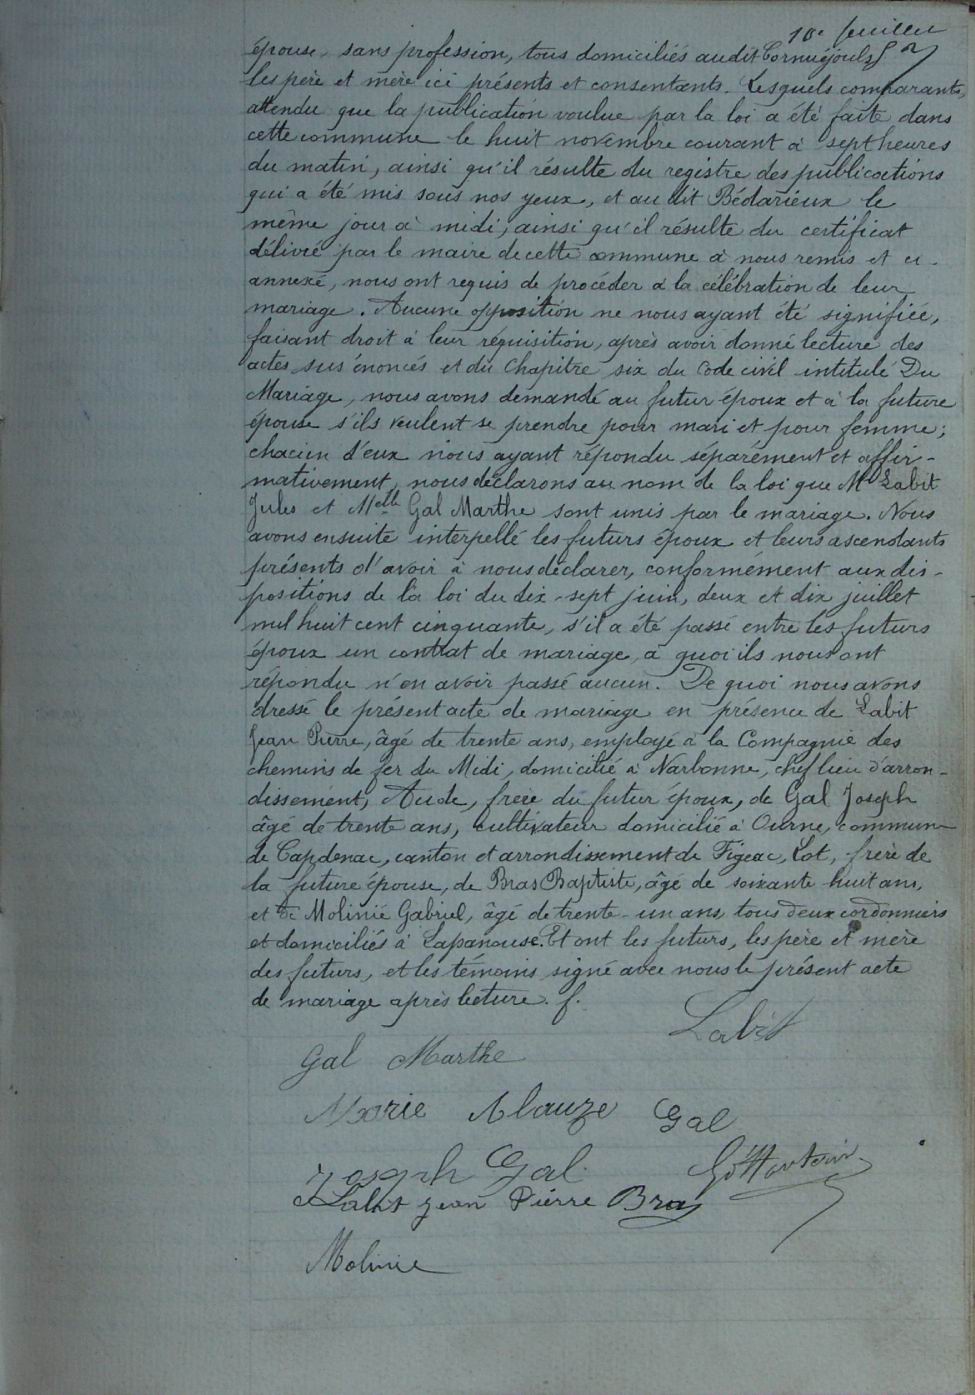 10e feuillet
épouse, sans profession, tous domiciliés audit Cornuéjouls,
les père et mère ici présents et consentants. Lesquels comparants,
attendu que la publication voulue par la loi a été faite dans
cette commune le huit novembre courant à sept heures
du matin, ainsi qu'il résulte du registre des publications
qui a été mis sous nos yeux, et au dit Bédarieux le
même jour à midi, ainsi qu'il résulte du certificat
délivré par le maire de cette commune à nous remis et ci-
annexé, nous ont requis de procéder à la célébration de leur
mariage. Aucune opposition ne nous ayant été signifiée,
faisant droit à leur réquisition, après avoir donné lecture des
actes sus énoncés et du chapitre six du code civil intitulé Du
Mariage, nous avons demandé au futur époux et à la future
épouse s'ils veulent se prendre pour mari et pour femme;
chacun d'eux nous ayant répondu séparément et affir-
mativement, nous déclarons au nom de la loi que Mr Labit
Jules et Melle Gal Marthe sont unis par le mariage. Nous
avons ensuite interpellé les futurs époux et leurs ascendants
présents d'avoir à nous déclarer, conformément aux dis-
positions de la loi du dix-sept juin, deux et dix juillet
mil huit cent cinquante, s'il a été passé entre les futurs
époux un contrat de mariage, à quoi ils nous ont
répondu n'en avoir passé aucun. De quoi nous avons
dressé le présent acte de mariage en présence de Labit
Jean Pierre, âgé de trente ans, employé à la Compagnie des
chemins de fer du Midi, domicilié à Narbonne, chef lieu d'arron-
dissement, Aude, frère du futur époux, de Gal Joseph
âgé de trente ans, cultivateur domicilié à Ourne, commune
de Capdenac, canton et arrondissement de Figeac, Lot, frère de
la future épouse, de Bras Baptiste, âgé de soixante huit ans,
et de Molinié Gabriel, âgé de trente-un ans, tous deux cordonniers
et domiciliés à Lapanouse. Et ont les futurs, les père et mère
des futurs, et les témoins signé avec nous le présent acte
de mariage après lecture. f.
Labit
Gal Marthe
Marie Alauze Gal
Joseph Gal
Labit Jean Pierre Bras
Molinié